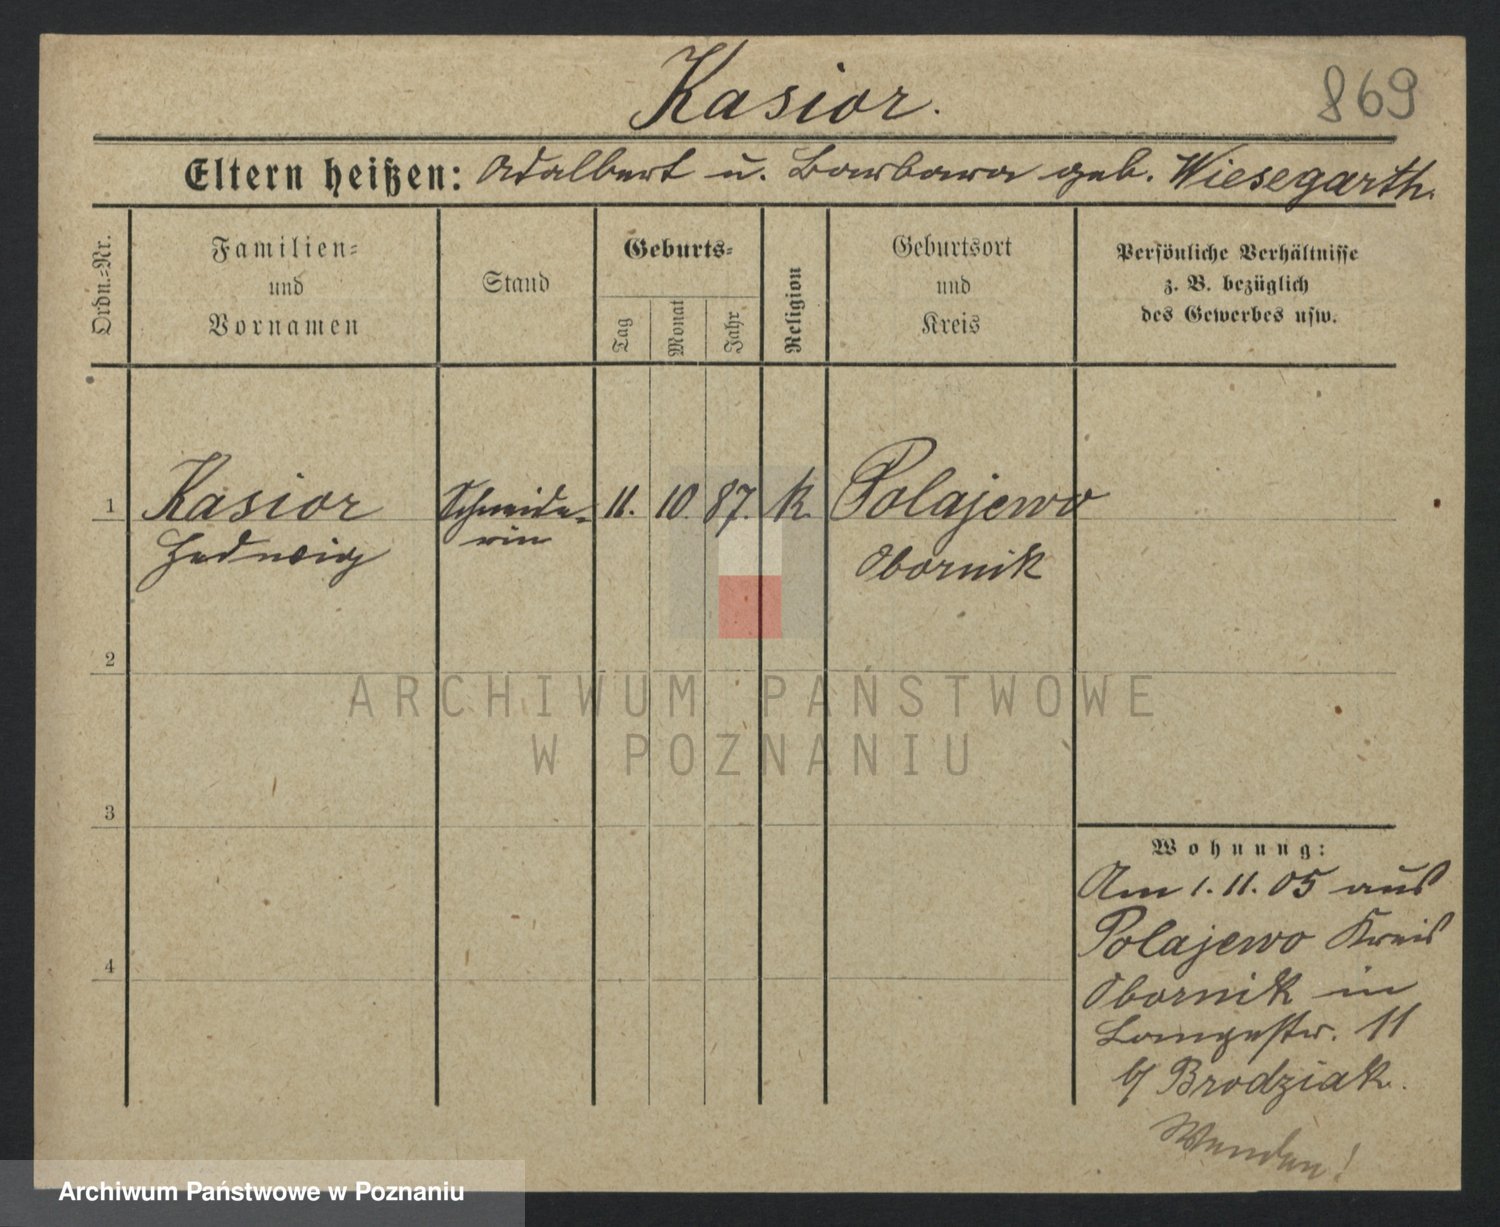 Kasior.
869
Eltern heißen: Adalbert u. Barbara geb. Wiesegarth.
Ordn.=Nr.
Familien=
und
Vornamen
Stand
Geburts=
Tag
Monat
Jahr
Religion
Geburtsort
und
Kreis
Persönliche Verhältnisse
z. B. bezüglich
des Gewerbes usw.
1 Kasior Schneide- 11. 10. 87. k. Polajewo
Hedwig rin Obornik
2
ARCHIWUM PAŃSTWOWE
W POZNANIU
3
Wohnung:
Am 1. 11. 05 aus
Polajewo Kreis
4
Obornik in
Langestr. 11
b/ Brodziak.
Wenden!
Archiwum Państwowe w Poznaniu